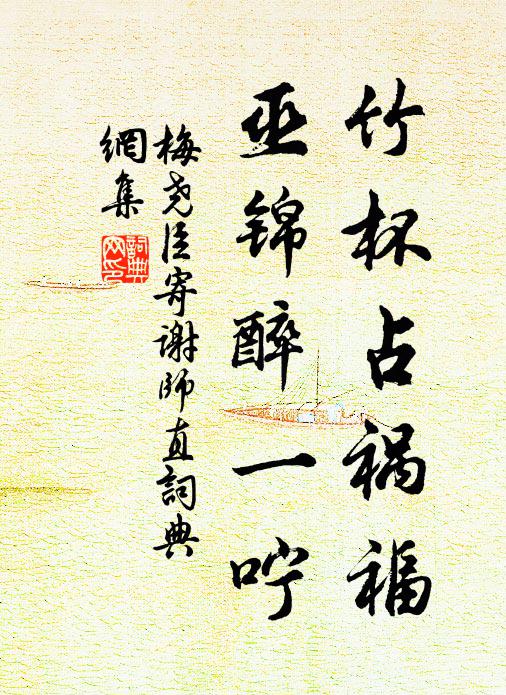 竹杯占祸福
巫锦醉一咛
梅尧臣寄谢师直詞典
網集
詞典
网印